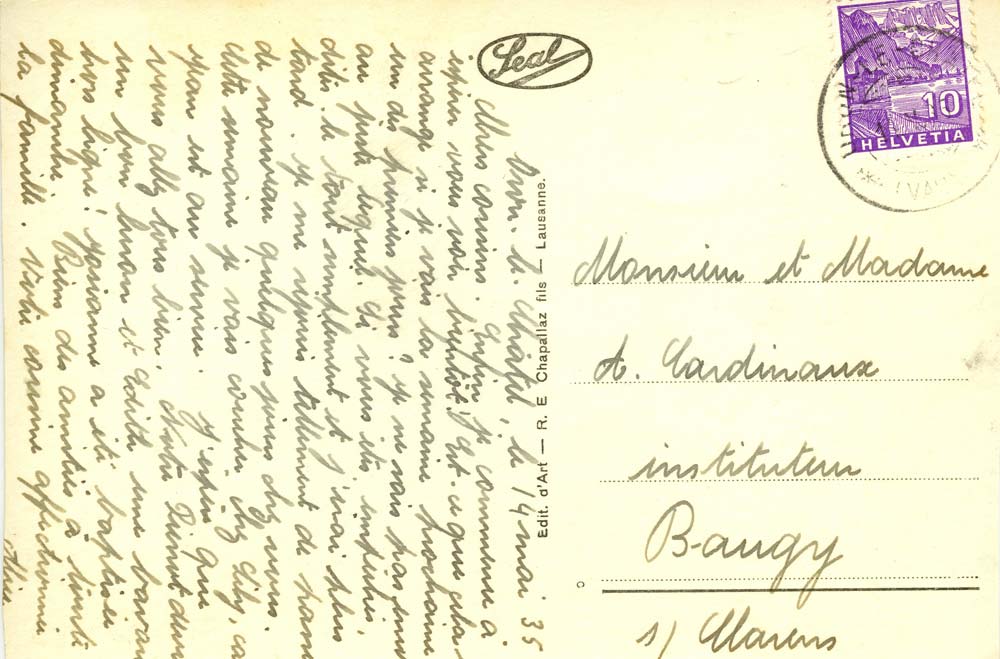 le Châtel, le 14 mai 35
Chers cousins. Enfin, je commence à
espérer vous voir bientôt! Est-ce que cela
arrange si je vais la semaine prochaine
un des premiers jours; je ne sais pas
au juste lequel. Si vous êtes
dites-le tout simplement et j'irai plus
tard. Je me réjouis tellement de
de nouveau quelques jours chez vous.
Cette semaine je vais coucher chez Lily, ca
est au service. J'espère que
vous allez tous bien. Notre
un bon luron et Edith une bava
hors ligne! a été baptisée
dimanche. Bien des amitiés à toute
la famille. Votre cousine affectionnée
Seal
Edit. d'Art — R. E. Chapallaz fils — Lausanne.
10
HELVETIA
(VAUD)
Monsieur et Madame
A. Cardinaux
instituteur
Baugy
s/ Clarens